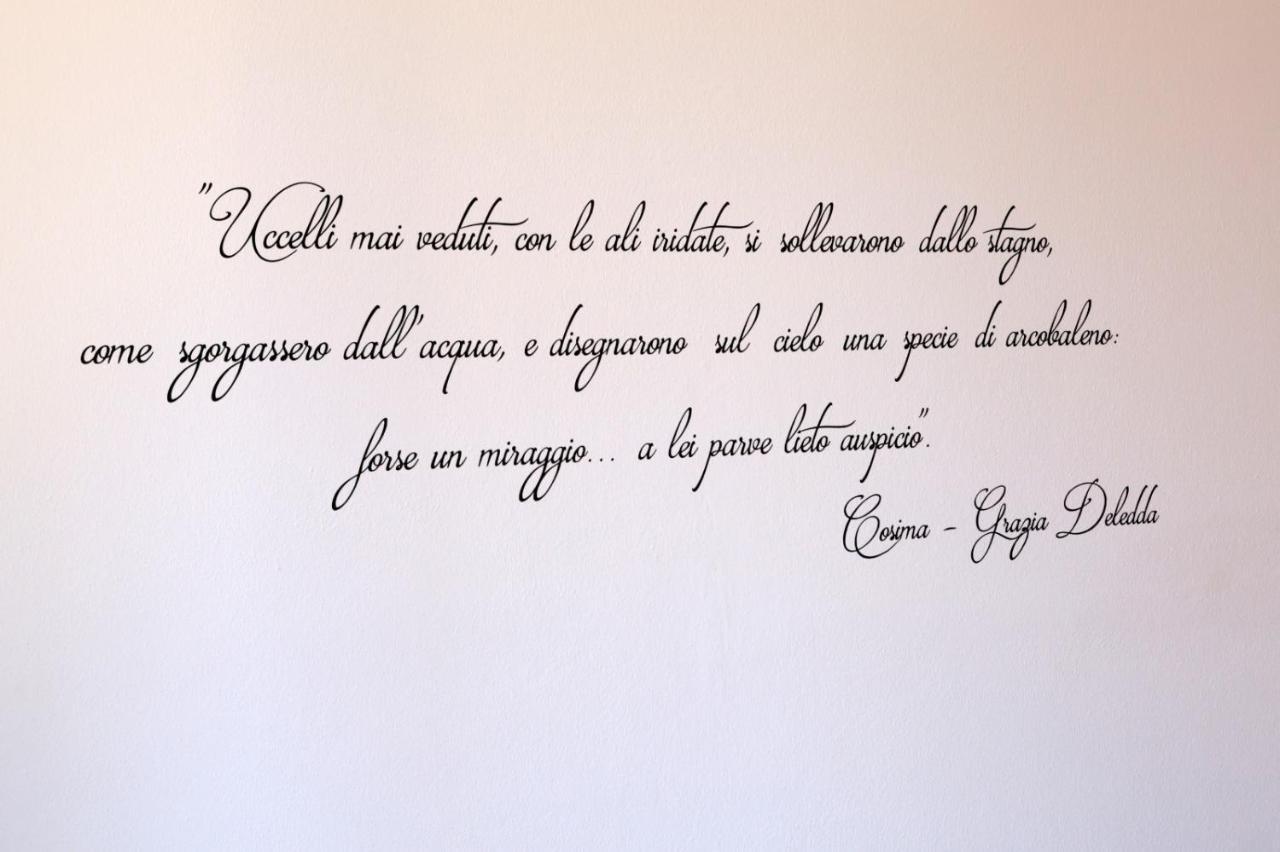 "Uccelli mai veduti, con le ali iridate, si sollevarono dallo stagno,
come sgorgassero dall'acqua, e disegnarono sul cielo una specie di arcobaleno:
forse un miraggio... a lei parve lieto auspicio".
Cosima - Grazia Deledda